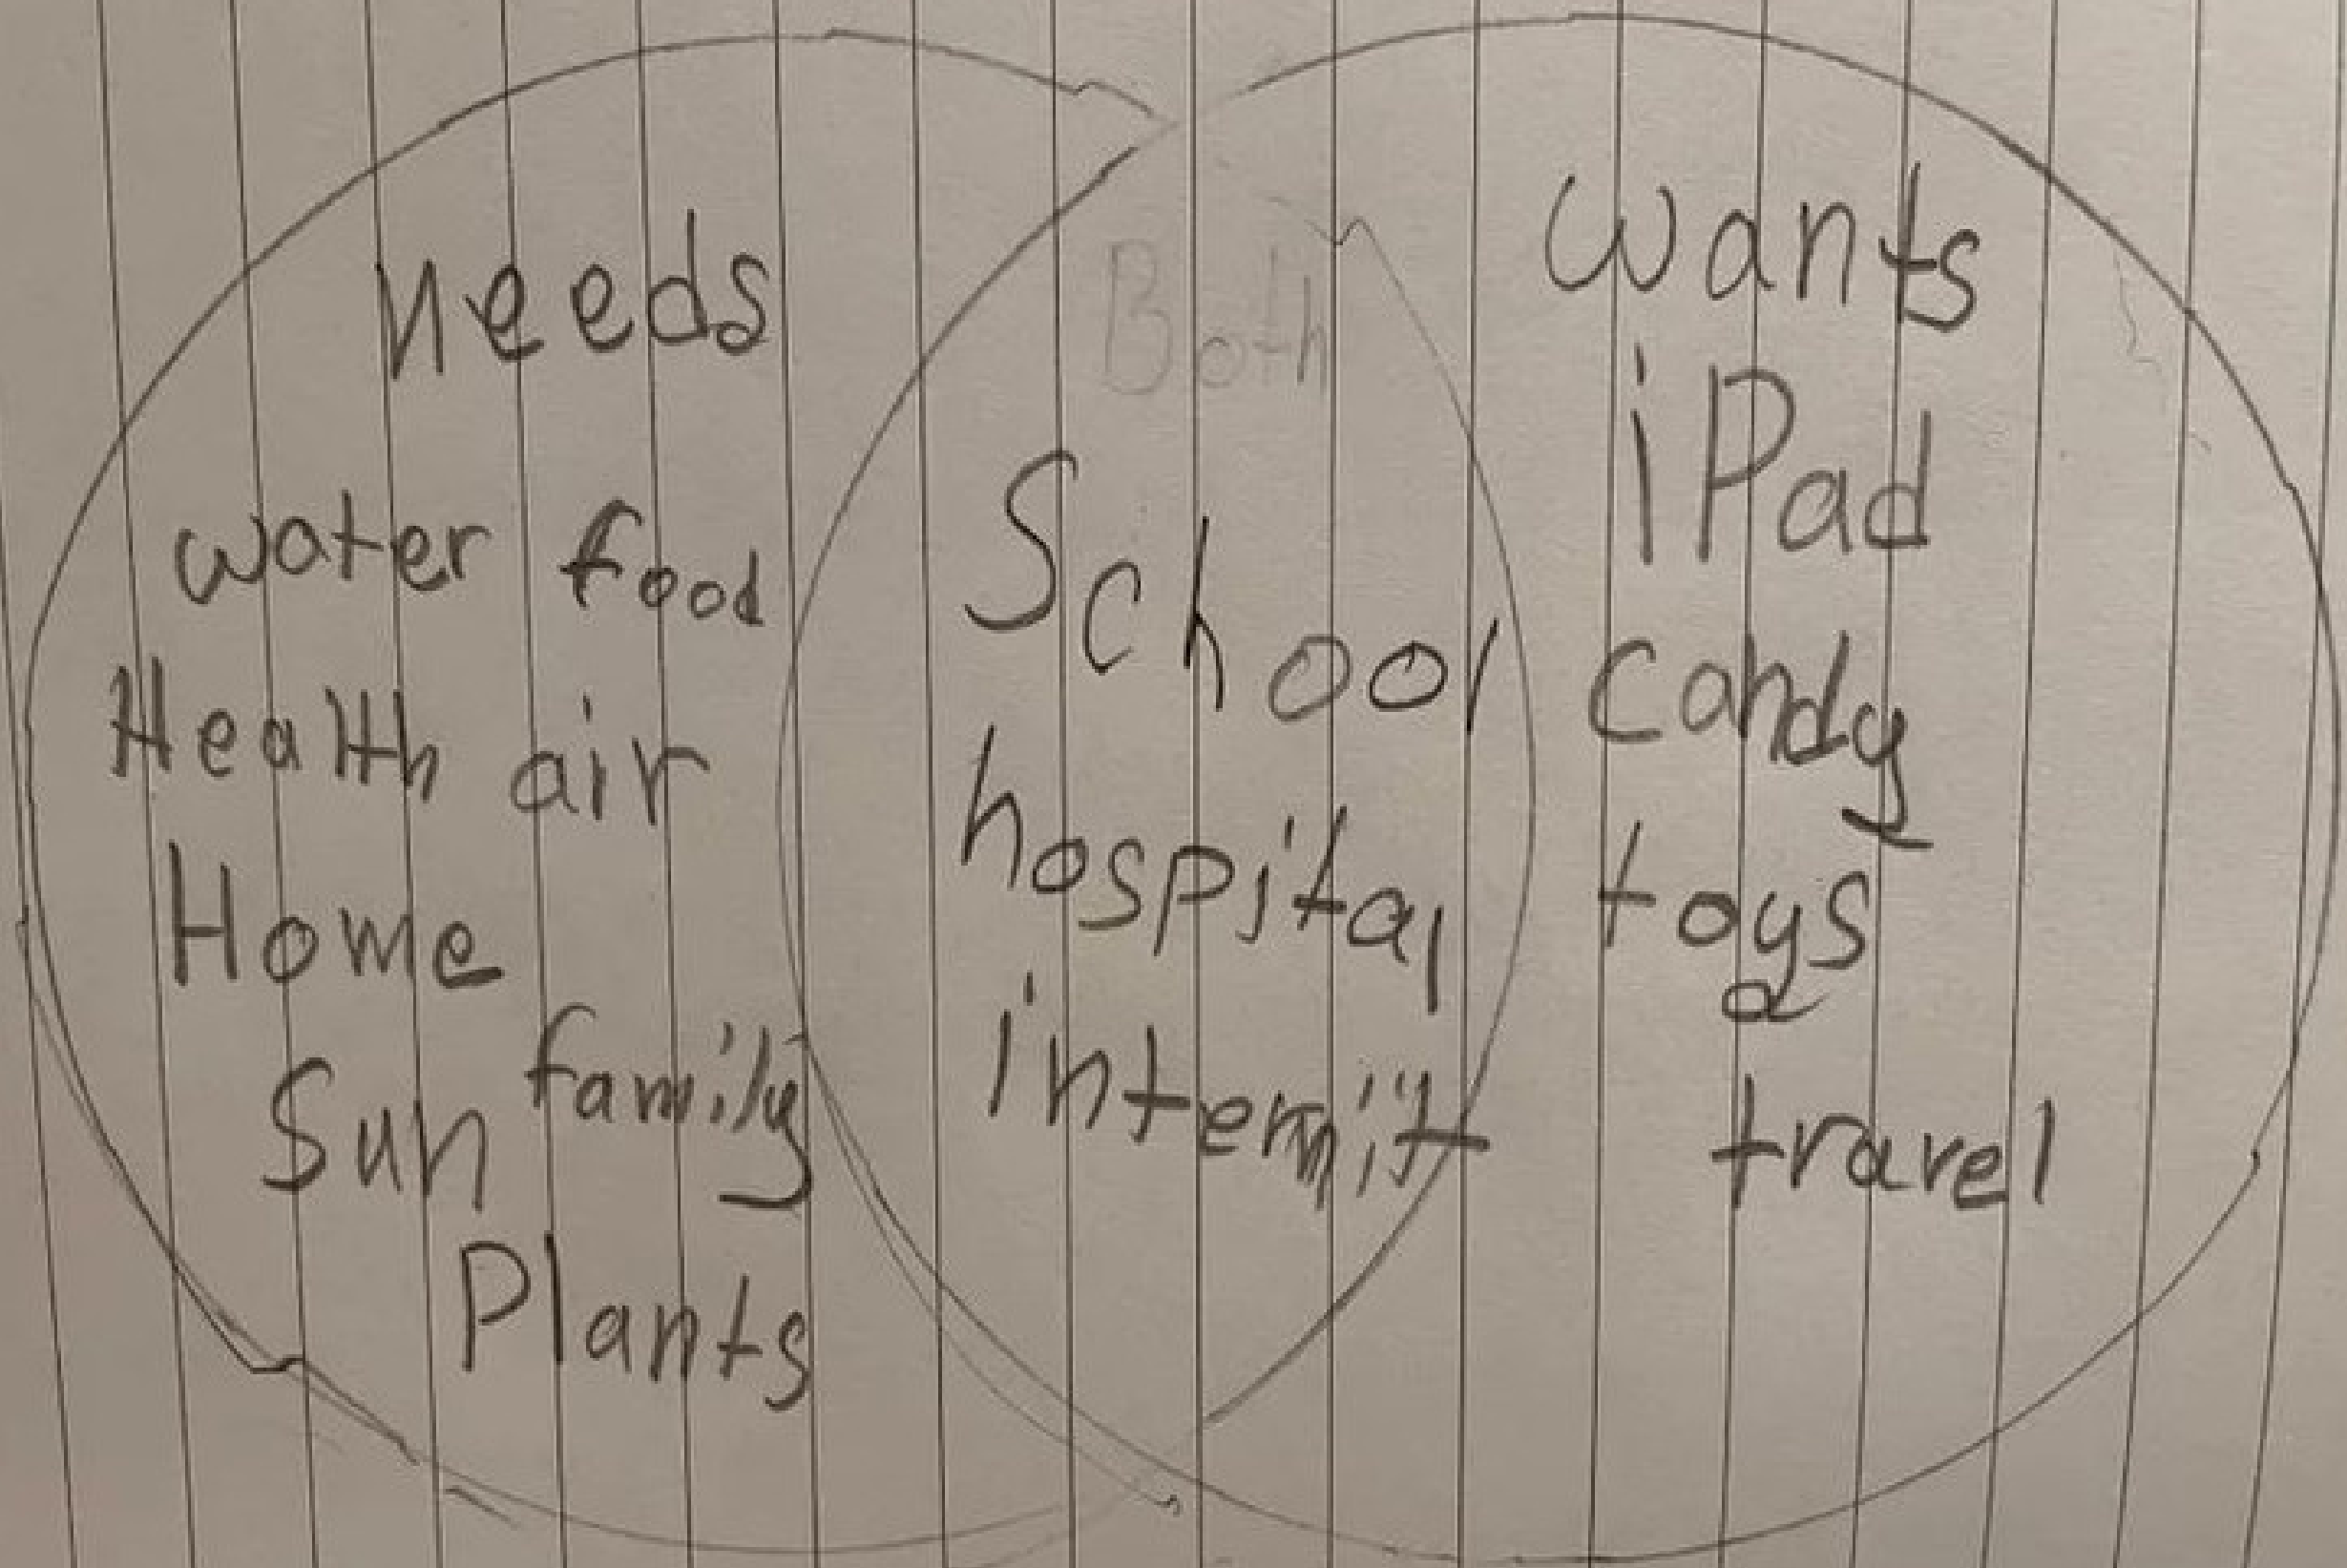 needs
water food
Health air
Home
Sun family
Plants
Both
School
hospital
internit
wants
iPad
candy
toys
travel